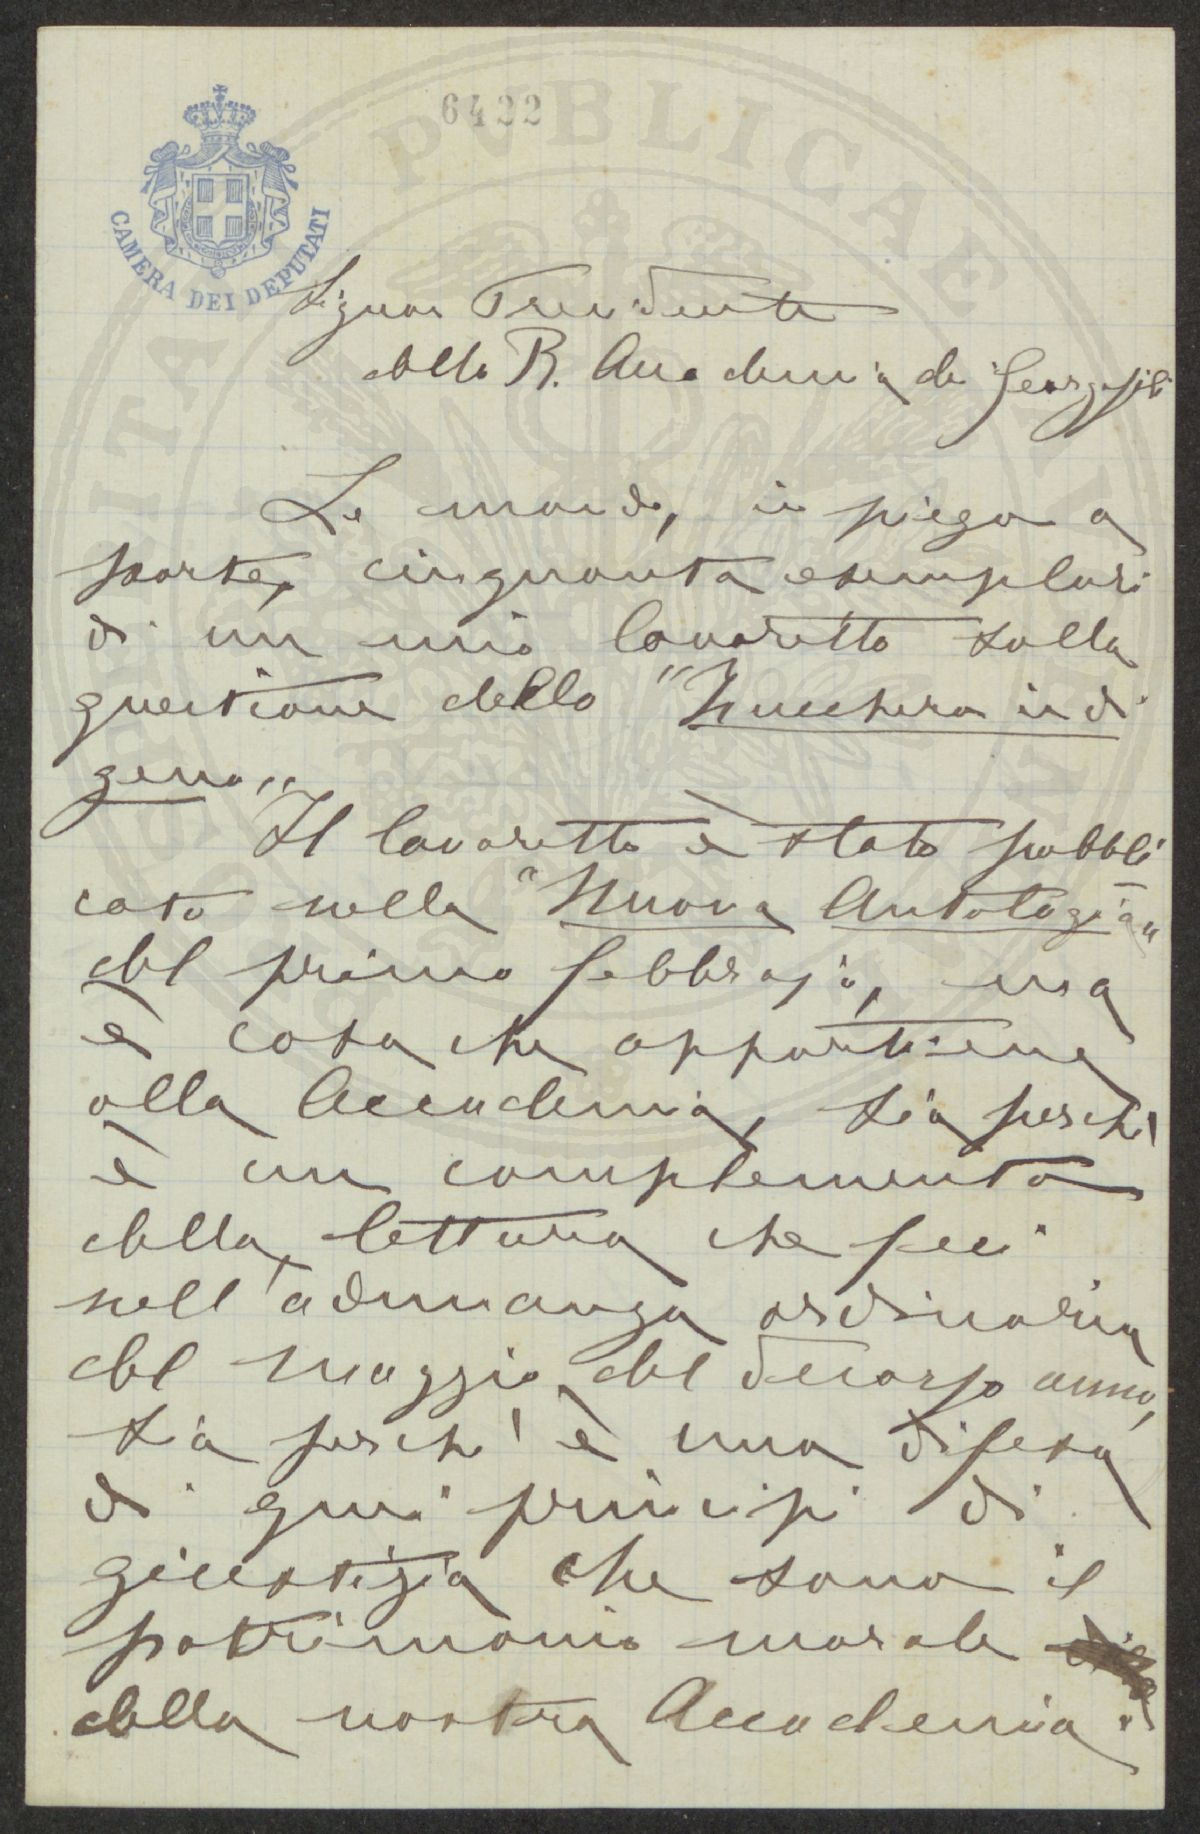 6422
CAMERA DEI DEPUTATI
Signor Presidente
della R. Accademia dei Georgofili
Le mando, in piego a
parte, cinquanta esemplari
di un mio lavoretto sulla
questione dello "Zucchero indi
geno"
Il lavoretto è stato pubbli
cato nella "Nuova Antologia"
del primo febbrajo, ma
è cosa che appartiene
alla Accademia, sia perchè
è un complemento
della lettura che feci
nell'adunanza ordinaria
del Maggio del decorso anno,
sia perchè è una difesa
di quei principi di
giustizia che sono il
patrimonio morale
della nostra Accademia.